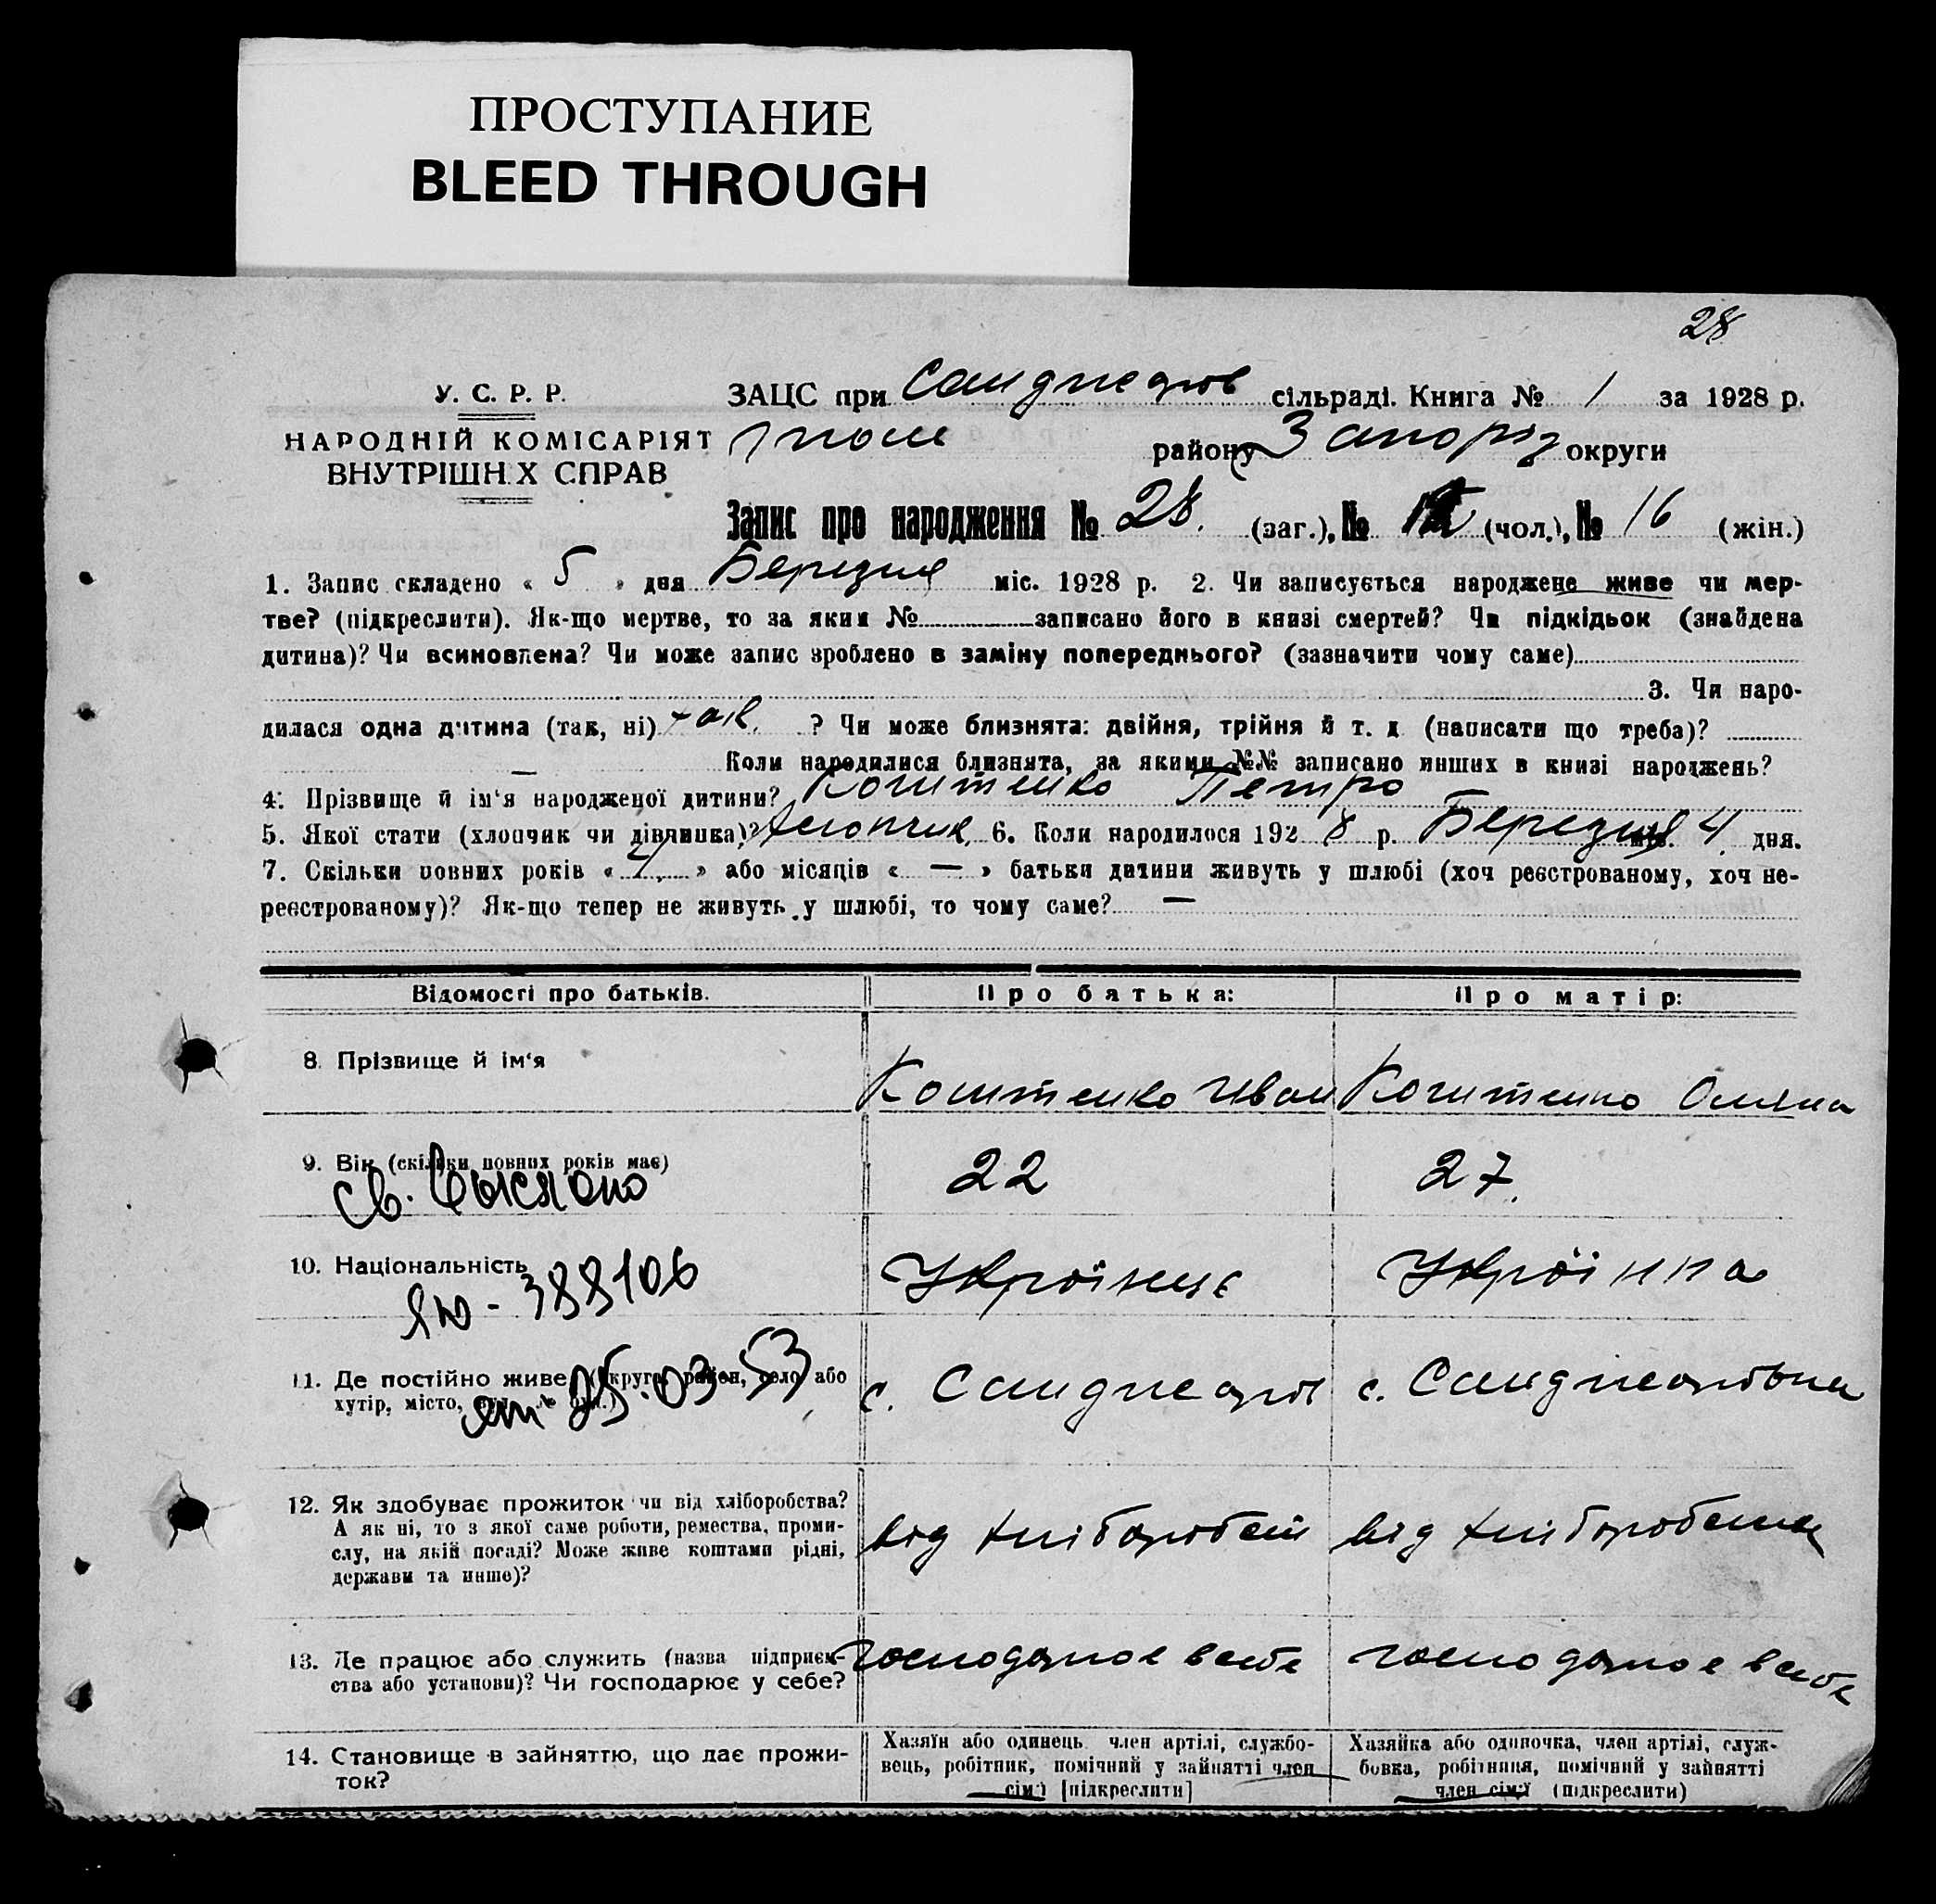 ПРОСТУПАНИЕ
BLEED THROUGH
28
У. С. Р. Р.
НАРОДНІЙ КОМІСАРІЯТ
ВНУТРІШН Х СПРАВ
ЗАЦС при сільраді. Книга № 1 за 1928 р.
району Запоріз округи
Запис про народження № 28. (заг.), № (чол.), № 16 (жін.)
1. Запис складено « 5 » дня Березня міс. 1928 р. 2. Чи записується народжене живе чи мер-
тве? (підкреслити). Як-що мертве, то за яким № записано його в книзі смертей? Чи підкідьок (знайдена
дитина)? Чи всиновлена? Чи може запис зроблено в заміну попереднього? (зазначити чому саме)
3. Чи наро-
дилася одна дитина (так, ні) так. ? Чи може близнята: двійня, трійня й т. д. (написати що треба)?
— Коли народилися близнята, за якими №№ записано инших в книзі народжень?
4. Прізвище й ім'я народженої дитини? Петро
5. Якої стати (хлопчик чи дівчинка)? хлопчик. 6. Коли народилося 192 8 р. Березня міс. 4 дня.
7. Скільки повних років « » або місяців « — » батьки дитини живуть у шлюбі (хоч реєстрованому, хоч не-
реєстрованому)? Як-що тепер не живуть у шлюбі, то чому саме? —
Відомості про батьків. Про батька: Про матір:
8. Прізвище й ім'я
Иван
9. Вік (скільки повних років має) 22 27.
св. выслано
10. Національність Українць Українка
ЯЮ - 388106
11. Де постійно живе (округа, район, село або
хутір, місто, вул. № буд.) с. с.
от 25.03-53
12. Як здобуває прожиток чи від хліборобства?
А як ні, то з якої саме роботи, ремества, проми-
слу, на якій посаді? Може живе коштами рідні,
держави та инше)?
від хліборобств від хліборобства
13. Де працює або служить (назва підприєм-
ства або установи)? Чи господарює у себе?
господарює в себе господарює в себе
14. Становище в зайняттю, що дає прожи-
ток?
Хазяїн або одинець член артілі, службо-
вець, робітник, помічний у зайнятті член
сім'ї [підкреслити]
Хазяйка або одиночка, член артілі, служ-
бовка, робітниця, помічний у зайнятті
член сім'ї (підкреслити)